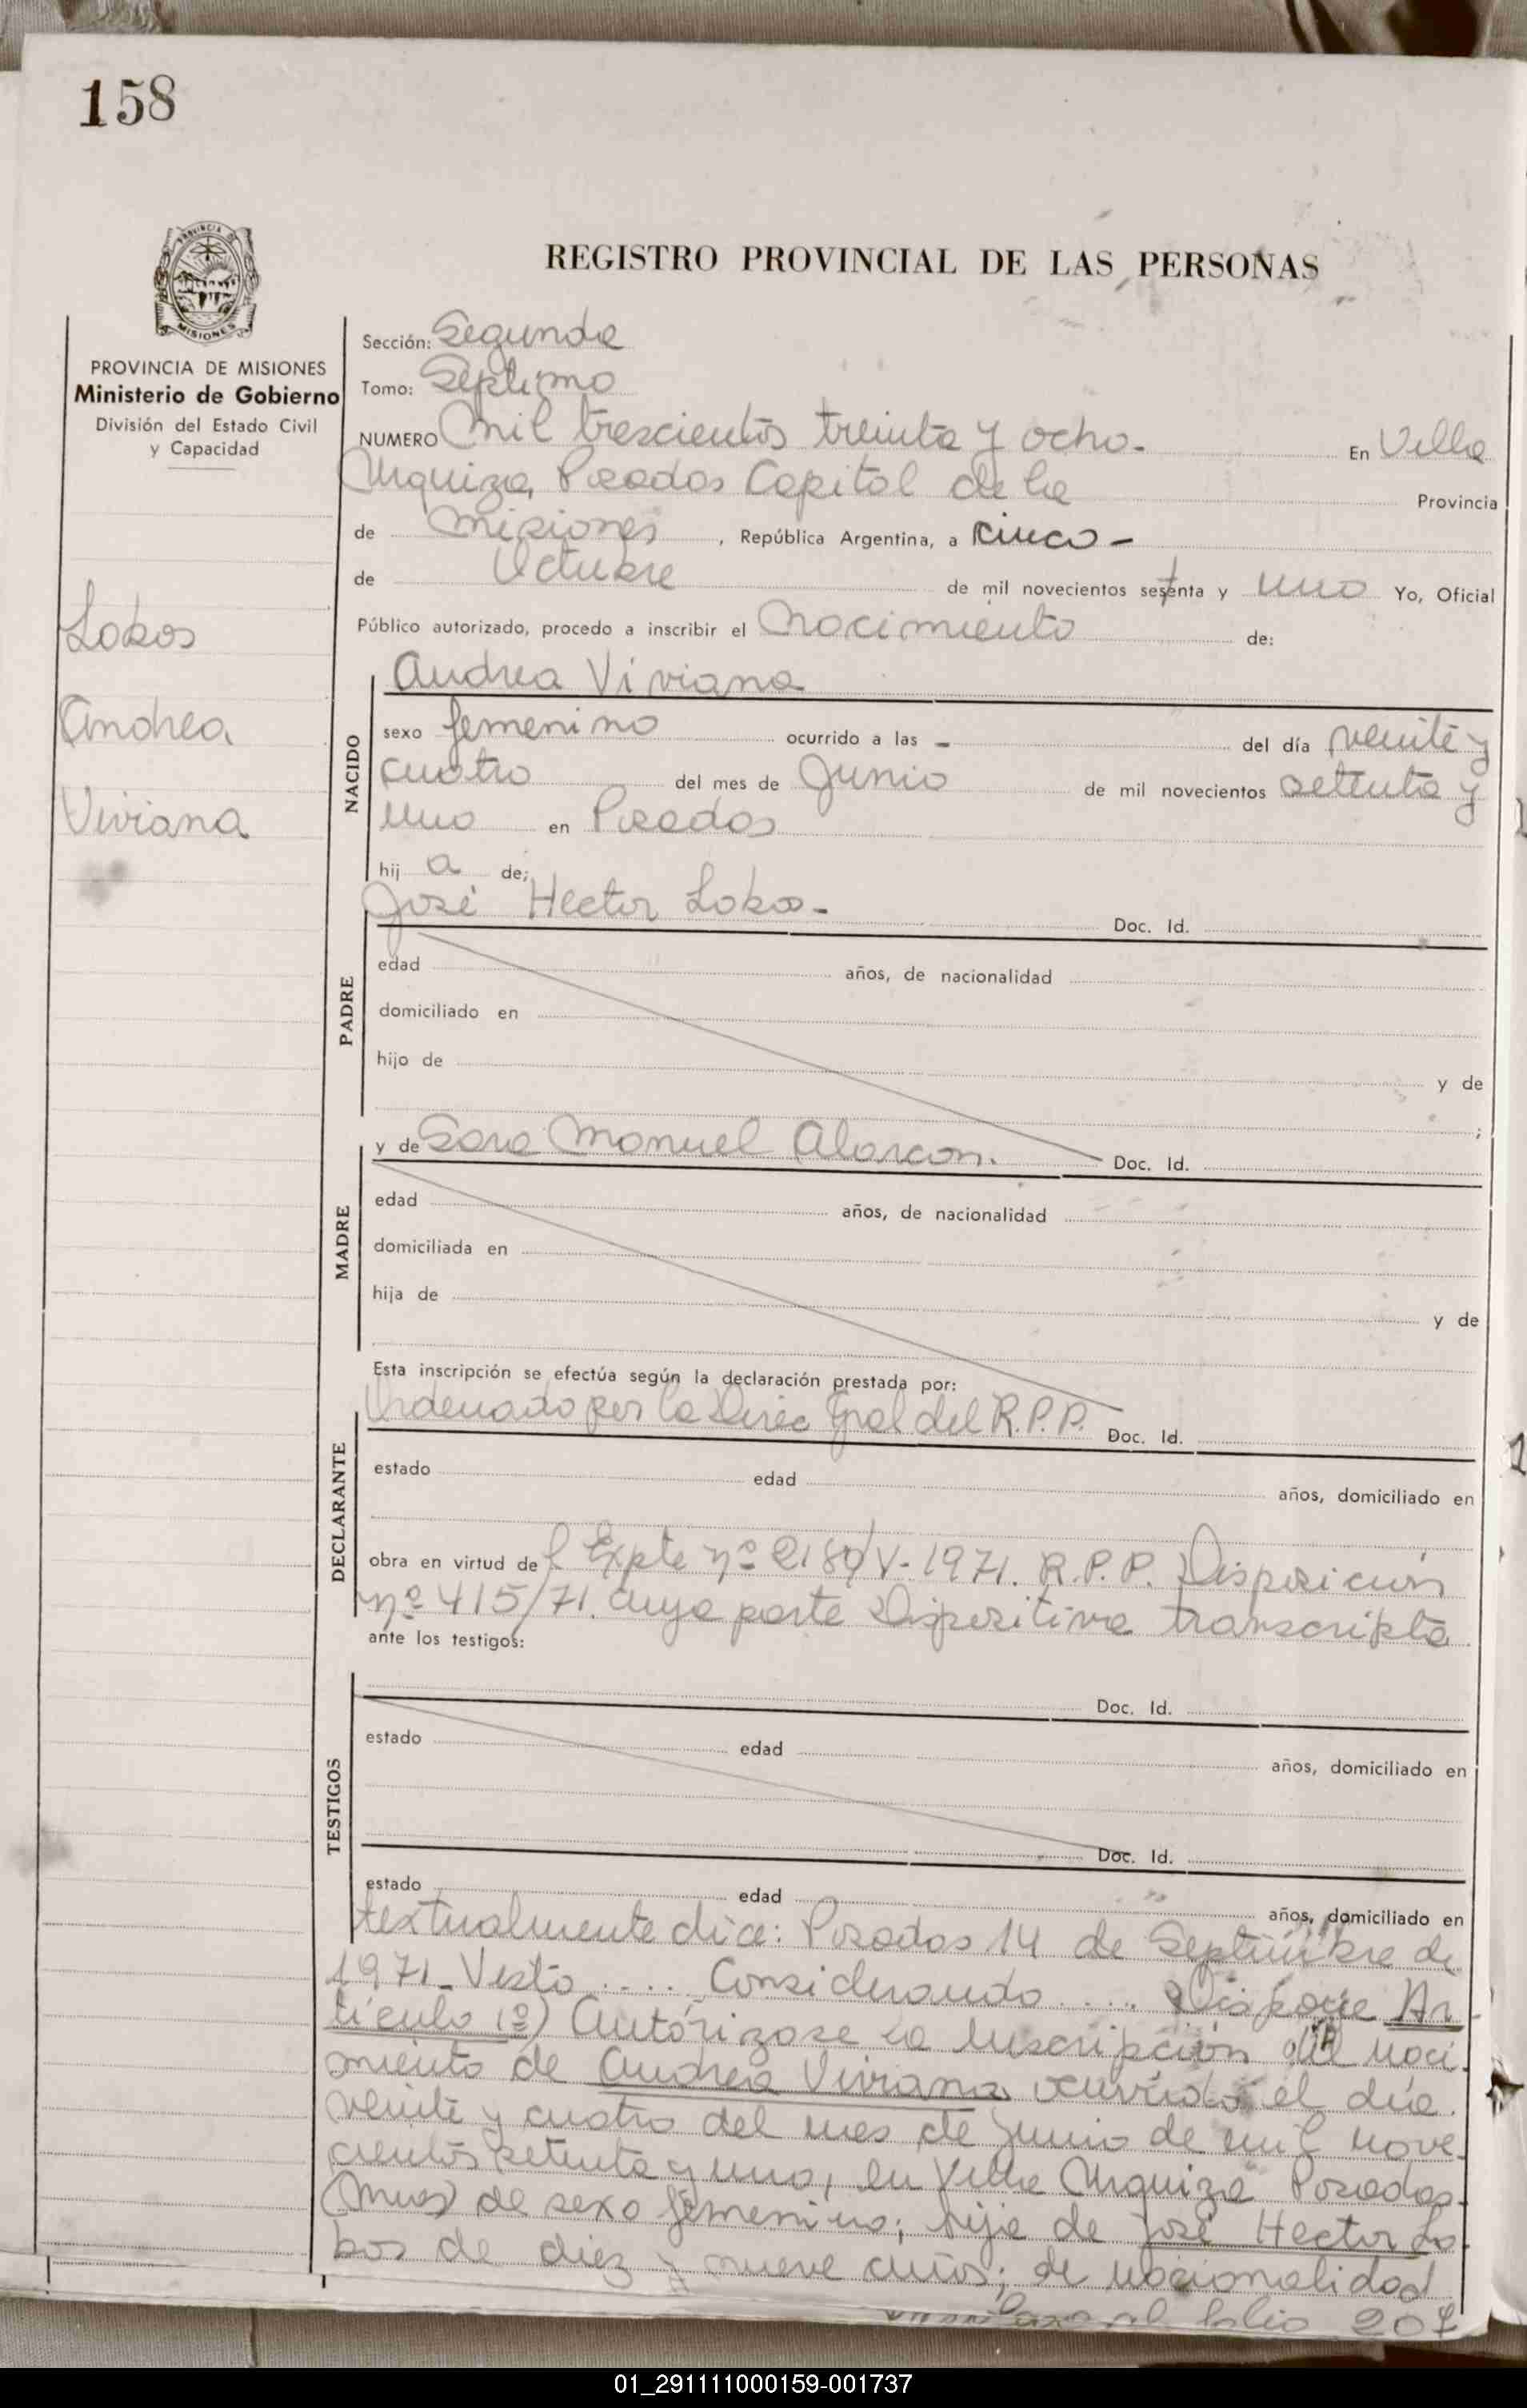 158
REGISTRO PROVINCIAL DE LAS PERSONAS
PROVINCIA DE MISIONES
Ministerio de Gobierno
División del Estado Civil
y Capacidad
Lobos
Andrea
Viviana
Sección: Segunda
Tomo: Séptimo
NUMERO Mil trescientos treinta y ocho. En Villa
Urquiza, Posadas Capital de la Provincia
de Misiones, República Argentina, a cinco -
de Octubre de mil novecientos setenta y uno Yo, Oficial
Público autorizado, procedo a inscribir el Nacimiento de:
NACIDO
Andrea Viviana
sexo femenino ocurrido a las - del día veinte y
cuatro del mes de Junio de mil novecientos setenta y
uno en Posadas
hij a de:
José Hector Lobos - Doc. Id.
PADRE
edad años, de nacionalidad
domiciliado en
hijo de y de
;
y de Sara Manuel Alarcon. Doc. Id.
MADRE
edad años, de nacionalidad
domiciliada en
hija de y de
Esta inscripción se efectúa según la declaración prestada por:
Ordenado por la Direc Gral del R.P.P. Doc. Id.
DECLARANTE
estado edad años, domiciliado en
obra en virtud de l Expte nº 2189/V-1971. R.P.P. Disposición
nº 415/71. cuya parte Dispositiva transcripta
ante los testigos:
TESTIGOS
Doc. Id.
estado edad años, domiciliado en
Doc. Id.
estado edad años, domiciliado en
textualmente dice: Posadas 14 de Septiembre de
1971_Visto .... Considerando .... Dispone Ar-
tículo 1º) Autorizase la Inscripción del naci-
miento de Andrea Viviana ocurrido el día
veinte y cuatro del mes de Junio de mil nove-
cientos setenta y uno, en Villa Urquiza Posadas-
(Mnes) de sexo femenino; hija de José Hector Lo-
bos de diez y nueve años; de nacionalidad
al folio 207
01_291111000159-001737